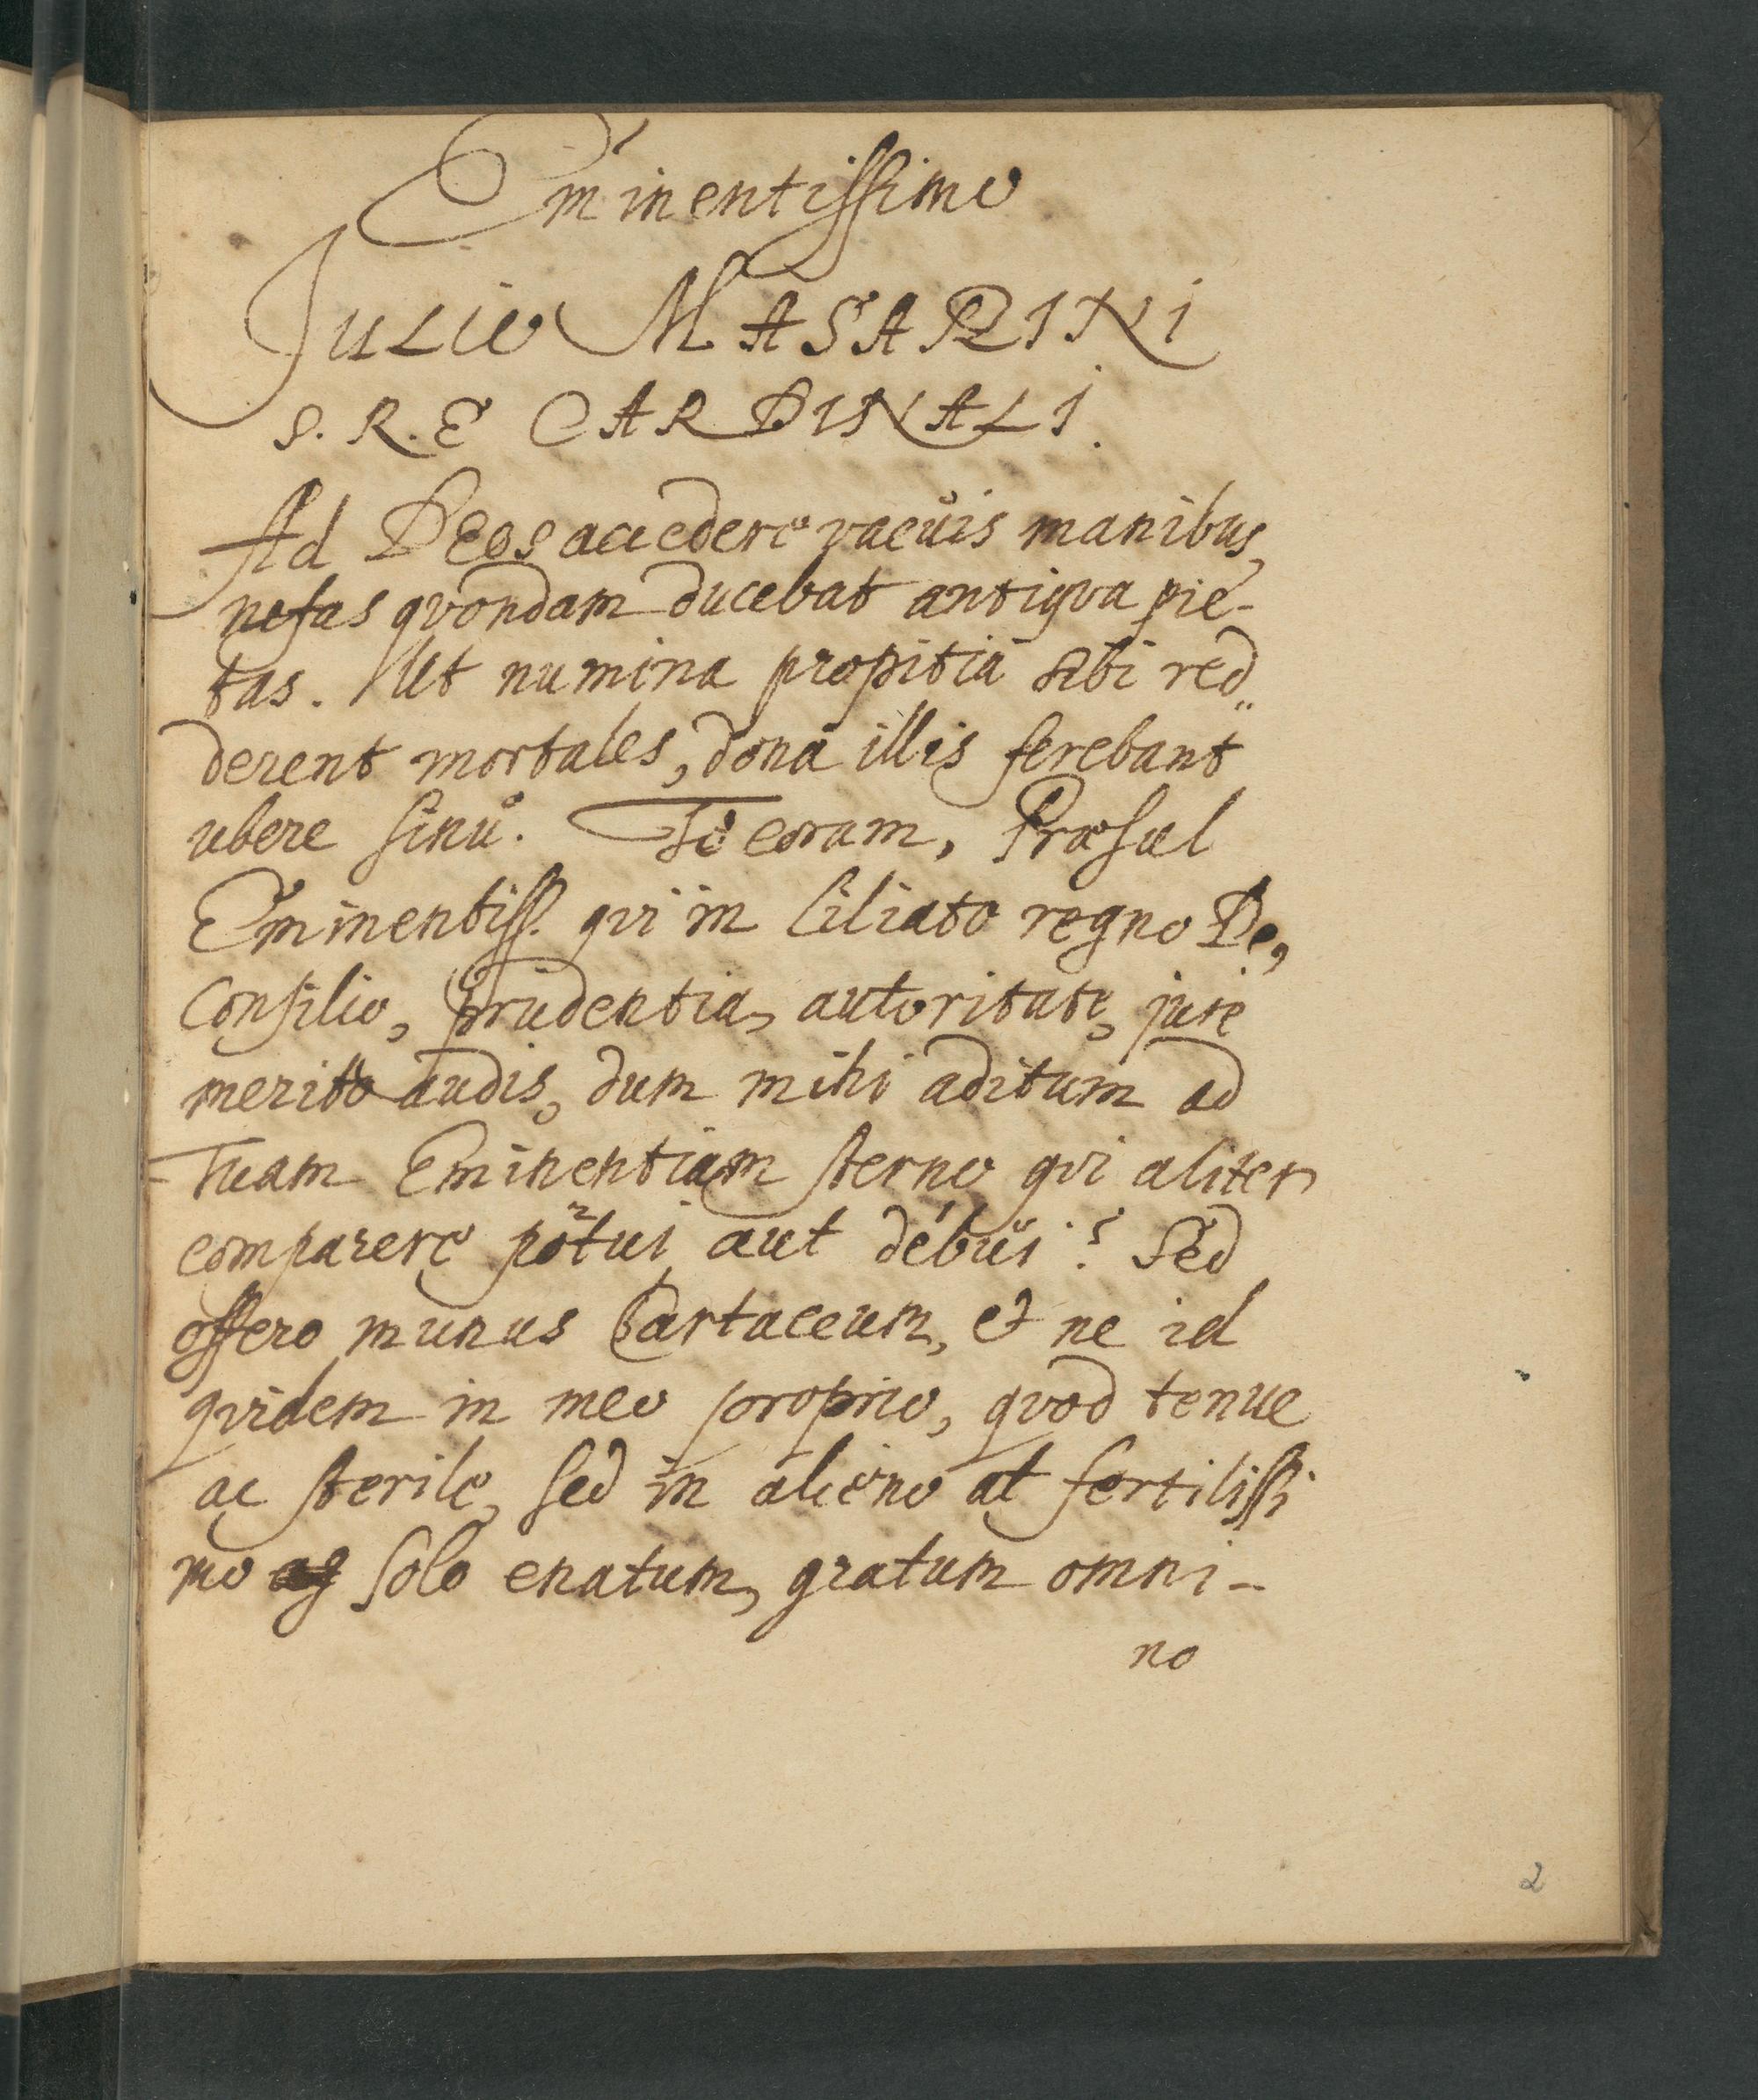 Eminentissimo
Julio MASARINI
S. R. E CARDINALI.
Ad Deos accedere vacuis manibus,
nefas qvondam ducebat antiqva pie-
tas. Ut numina propitia sibi red„
derent mortales, dona illis ferebant
ubere sinu. Te coram, Præsul
Eminentiss. qvi in liliato regno De,
Consilio, prudentia, autoritate, jure
merito audis, dum mihi aditum ad
Tuam Eminentiam sterno qvi aliter
comparere potui aut debui? Sed
offero munus Cartaceum, & ne id
qvidem in meo proprio, qvod tenue
ac sterile, sed in alieno at fertilissi
mo solo enatum, gratum omni-
no
2